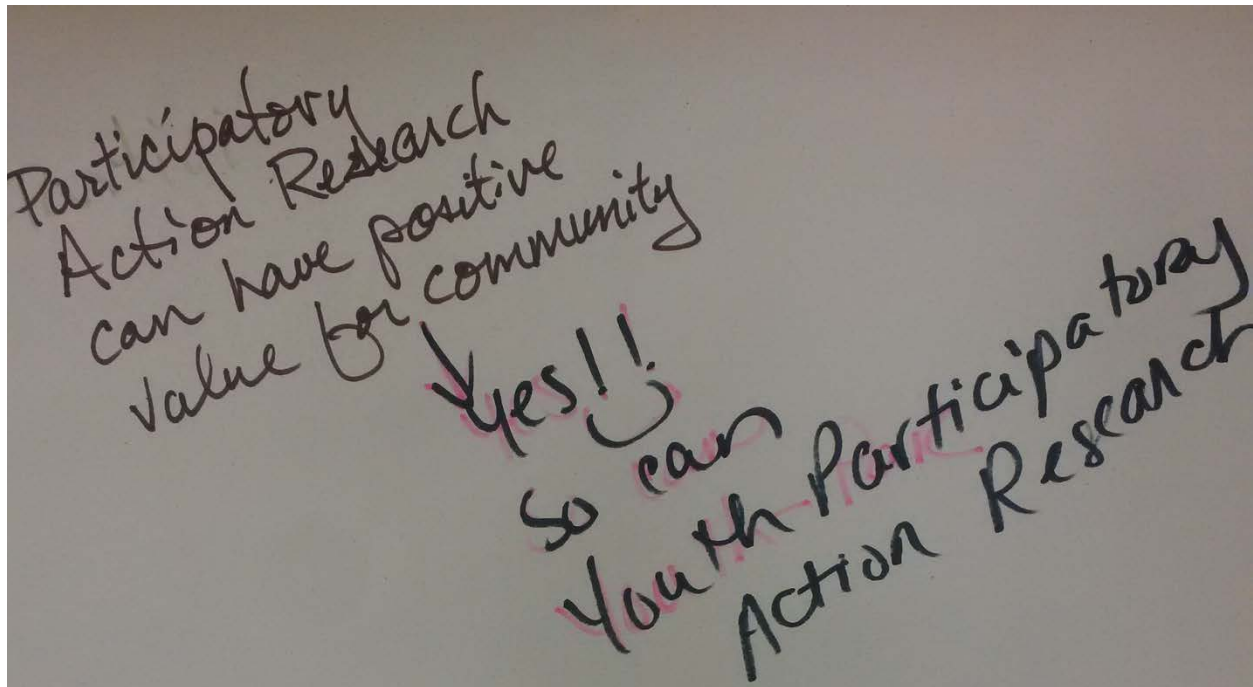 Participatory
Action Research
can have positive
value for community
Yes!!
so can
Youth Participatory
Action Research